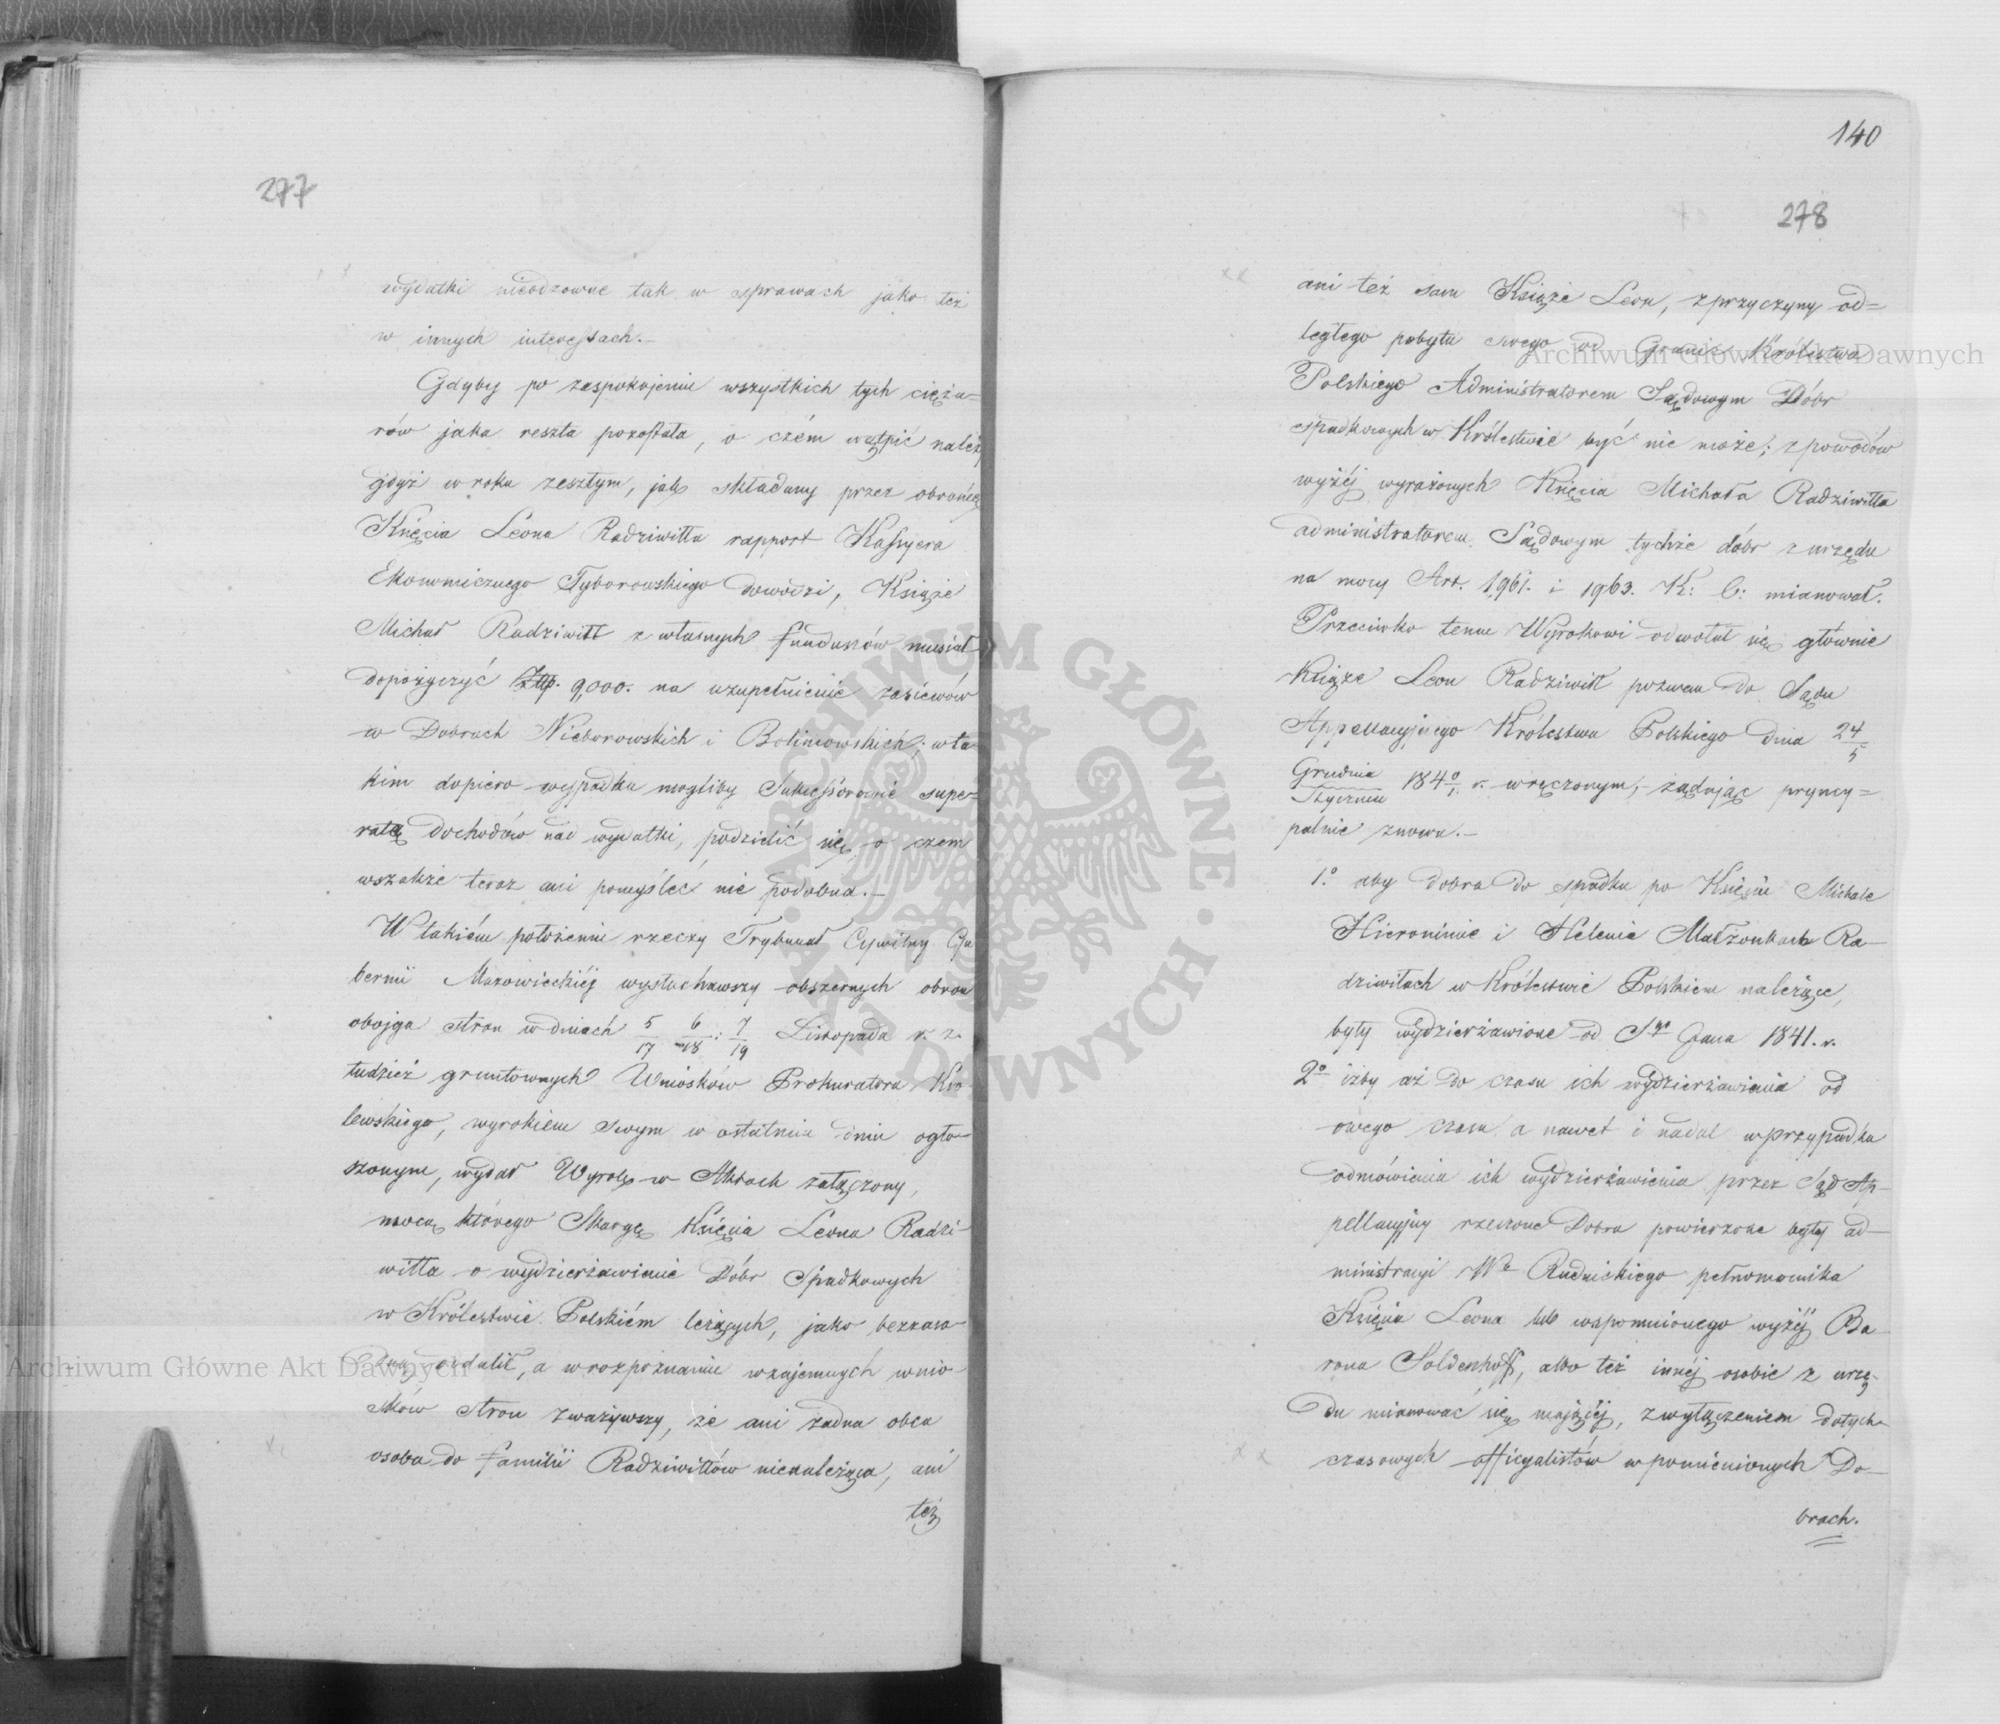 277
wydatki nieodzowne tak w sprawach jako też
w innych interessach.—
Gdyby po zaspokojeniu wszystkich tych cięża-
rów jaka reszta pozostała, o czém wątpić należy
gdyż w roku zeszłym, jak składany przez obrońcę
Księcia Leona Radziwiłła rapport Kassyera
Ekonomicznego Tyborowskiego dowodzi, Książe
Michał Radziwiłł z własnych funduszów musiał
dopożyczyć Złp. 9,000. na uzupełnienie zasiewów
w Dobrach Nieborowskich i Bolimowskich; w ta-
kim dopiero wypadku mogliby Sukcessorowie supe-
ratę dochodów nad wydatki, podzielić się, o czem
wszakże teraz ani pomyśleć nie podobna.—
W takiém położeniu rzeczy Trybunał Cywilny Gu
bernii Mazowieckiéj wysłuchawszy obszernych obron
obojga stron w dniach 5/17 6/18: 7/19 Listopada r. z.
tudzież gruntownych Wniosków Prokuratora Kró
lewskiego, wyrokiem swym w ostatnim dniu ogło-
szonym, wydał Wyrok w Aktach załączony,
mocą którego Skargę Księcia Leona Radzi-
wiłła o wydzierżawienie Dóbr Spadkowych
w Królestwie Polskiém leżących, jako bezzasa-
dną, oddalił, a w rozpoznaniu wzajemnych wnio-
sków stron zważywszy, że ani żadna obca
osoba do familii Radziwiłłów nienależąca, ani
też
140
278
ani też sam Książe Leon, z przyczyny od=
ległego pobytu swego od Granic Królestwa
Polskiego Administratorem Sądowym Dóbr
spadkowych w Królestwie być nie może; z powodów
wyżéj wyrażonych Księcia Michała Radziwiłła
administratorem Sądowym tychże dóbr z urzędu
na mocy Art. 1,961. i 1963. K: C: mianował.
Przeciwko temu Wyrokowi odwołał się głównie
Książe Leon Radziwiłł pozwem do Sądu
Appellacyjnego Królestwa Polskiego dnia 24/5
Grudnia/Stycznia 184 0/1 r. wręczonym, żądając pryncy=
palnie znowu.—
1.o aby dobra do spadku po Księciu Michale
Hieronimie i Helenie Małżonkach Ra-
dziwiłach w Królestwie Polskiem należące,
były wydzierżawione od Sgo Jana 1841. r.
2o iżby aż do czasu ich wydzierżawienia od
owego czasu a nawet i nadal w przypadku
odmówienia ich wydzierżawienia przez Sąd Ap-
pellacyjny rzeczone Dobra powierzone były ad-
ministracyi Wo Rudnickiego pełnomocnika
Księcia Leona lub wspomnionego wyżéj Ba-
rona Soldenhoff, albo też innéj osobie z urzę-
du mianować się mającéj, z wyłączeniem dotych-
czasowych officyalistów w pomienionych Do-
brach.
Archiwum Główne Akt Dawnych
Archiwum Główne Akt Dawnych
ARCHIWUM GŁÓWNE · AKT DAWNYCH ·